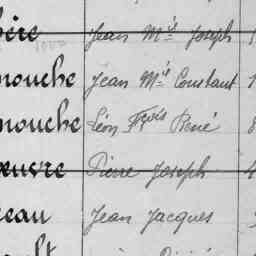 bère Jean Mie Joseph
mouche Jean Mie Constant
mouche Léon Fçois René
œuvre Pierre Joseph
eau Jean Jacques